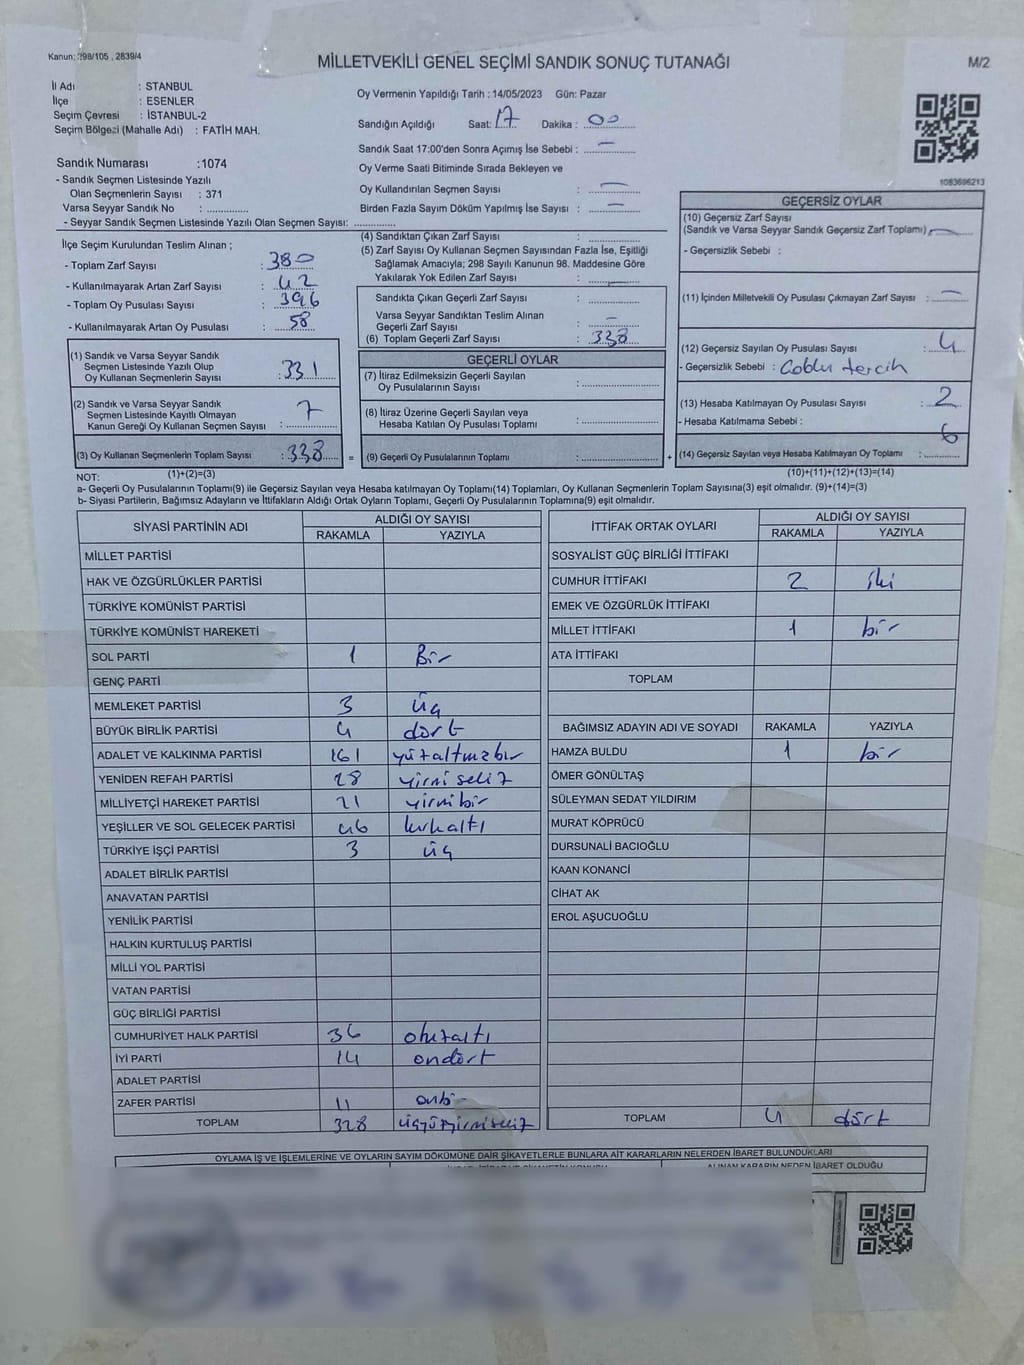 Kanun: 298/105 , 2839/4
MİLLETVEKİLİ GENEL SEÇİMİ SANDIK SONUÇ TUTANAĞI
M/2
İl Adı : STANBUL
İlçe : ESENLER
Seçim Çevresi : İSTANBUL-2
Seçim Bölgezi (Mahalle Adı) : FATİH MAH.
Sandık Numarası :1074
- Sandık Seçmen Listesinde Yazılı
Olan Seçmenlerin Sayısı : 371
Varsa Seyyar Sandık No : ..............
- Seyyar Sandık Seçmen Listesinde Yazılı Olan Seçmen Sayısı: ..............
Oy Vermenin Yapıldığı Tarih : 14/05/2023 Gün: Pazar
Sandığın Açıldığı Saat: 17 Dakika : 00
Sandık Saat 17:00'den Sonra Açımış İse Sebebi : —
Oy Verme Saati Bitiminde Sırada Bekleyen ve
Oy Kullandırılan Seçmen Sayısı : —
Birden Fazla Sayım Döküm Yapılmış İse Sayısı : —
1083696213
İlçe Seçim Kurulundan Teslim Alınan ;
- Toplam Zarf Sayısı : 380
- Kullanılmayarak Artan Zarf Sayısı : 42
- Toplam Oy Pusulası Sayısı : 396
- Kullanılmayarak Artan Oy Pusulası : 58
(1) Sandık ve Varsa Seyyar Sandık
Seçmen Listesinde Yazılı Olup
Oy Kullanan Seçmenlerin Sayısı : 331
(2) Sandık ve Varsa Seyyar Sandık
Seçmen Listesinde Kayıtlı Olmayan
Kanun Gereği Oy Kullanan Seçmen Sayısı : 7
(3) Oy Kullanan Seçmenlerin Toplam Sayısı : 338 =
(1)+(2)=(3)
(4) Sandıktan Çıkan Zarf Sayısı :
(5) Zarf Sayısı Oy Kullanan Seçmen Sayısından Fazla İse, Eşitliği
Sağlamak Amacıyla; 298 Sayılı Kanunun 98. Maddesine Göre
Yakılarak Yok Edilen Zarf Sayısı :
Sandıkta Çıkan Geçerli Zarf Sayısı :
Varsa Seyyar Sandıktan Teslim Alınan
Geçerli Zarf Sayısı : —
(6) Toplam Geçerli Zarf Sayısı : 338
GEÇERLİ OYLAR
(7) İtiraz Edilmeksizin Geçerli Sayılan
Oy Pusulalarının Sayısı :
(8) İtiraz Üzerine Geçerli Sayılan veya
Hesaba Katılan Oy Pusulası Toplamı :
(9) Geçerli Oy Pusulalarının Toplamı : +
GEÇERSİZ OYLAR
(10) Geçersiz Zarf Sayısı
(Sandık ve Varsa Seyyar Sandık Geçersiz Zarf Toplamı) —
- Geçersizlik Sebebi :
(11) İçinden Milletvekili Oy Pusulası Çıkmayan Zarf Sayısı : —
(12) Geçersiz Sayılan Oy Pusulası Sayısı : 4
- Geçersizlik Sebebi : Çoblu tercih
(13) Hesaba Katılmayan Oy Pusulası Sayısı : 2
- Hesaba Katılmama Sebebi :
(14) Geçersiz Sayılan veya Hesaba Katılmayan Oy Toplamı : 6
(10)+(11)+(12)+(13)=(14)
NOT:
a- Geçerli Oy Pusulalarının Toplamı(9) ile Geçersiz Sayılan ve Hesaba katılmayan Oy Toplamı(14) Toplamları, Oy Kullanan Seçmenlerin Toplam Sayısına(3) eşit olmalıdır. (9)+(14)=(3)
b- Siyasi Partilerin, Bağımsız Adayların ve İttifakların Aldığı Ortak Oyların Toplamı, Geçerli Oy Pusulalarının Toplamına(9) eşit olmalıdır.
SİYASİ PARTİNİN ADI
ALDIĞI OY SAYISI
RAKAMLA YAZIYLA
MİLLET PARTİSİ
HAK VE ÖZGÜRLÜKLER PARTİSİ
TÜRKİYE KOMÜNİST PARTİSİ
TÜRKİYE KOMÜNİST HAREKETİ
SOL PARTİ 1 Bir
GENÇ PARTİ
MEMLEKET PARTİSİ 3 üç
BÜYÜK BİRLİK PARTİSİ 4 dört
ADALET VE KALKINMA PARTİSİ 161 yüzaltmışbir
YENİDEN REFAH PARTİSİ 28 yirmi sekiz
MİLLİYETÇİ HAREKET PARTİSİ 21 yirmibir
YEŞİLLER VE SOL GELECEK PARTİSİ 46 kırkaltı
TÜRKİYE İŞÇİ PARTİSİ 3 üç
ADALET BİRLİK PARTİSİ
ANAVATAN PARTİSİ
YENİLİK PARTİSİ
HALKIN KURTULUŞ PARTİSİ
MİLLİ YOL PARTİSİ
VATAN PARTİSİ
GÜÇ BİRLİĞİ PARTİSİ
CUMHURİYET HALK PARTİSİ 36 otuzaltı
İYİ PARTİ 14 ondört
ADALET PARTİSİ
ZAFER PARTİSİ 11 onbir
TOPLAM 328 üçyüzyirmisekiz
İTTİFAK ORTAK OYLARI
ALDIĞI OY SAYISI
RAKAMLA YAZIYLA
SOSYALİST GÜÇ BİRLİĞİ İTTİFAKI
CUMHUR İTTİFAKI 2 iki
EMEK VE ÖZGÜRLÜK İTTİFAKI
MİLLET İTTİFAKI 1 bir
ATA İTTİFAKI
TOPLAM
BAĞIMSIZ ADAYIN ADI VE SOYADI RAKAMLA YAZIYLA
HAMZA BULDU 1 bir
ÖMER GÖNÜLTAŞ
SÜLEYMAN SEDAT YILDIRIM
MURAT KÖPRÜCÜ
DURSUNALİ BACIOĞLU
KAAN KONANCİ
CİHAT AK
EROL AŞUCUOĞLU
TOPLAM 4 dört
OYLAMA İŞ VE İŞLEMLERİNE VE OYLARIN SAYIM DÖKÜMÜNE DAİR ŞİKAYETLERLE BUNLARA AİT KARARLARIN NELERDEN İBARET BULUNDUKLARI
ALINAN KARARIN NEDEN İBARET OLDUĞU